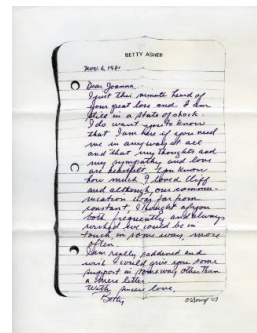 BETTY ASHER
Nov. 6, 1981
Dear Joanna
I just this minute heard of
your great loss and I am
still in a state of shock.
I do want you to know
that I am here if you need
me in any way at all
and that my thoughts and
my sympathy and love
are heartfelt. You know
how much I loved Cliff
and although our commun-
ication was far from
constant, I thought of you
both frequently and always
wished we could be in
touch in some way, more
often.
I am really saddened and
wish I could give you some
support in some way other than
a mere letter
With sincere love,
Betty